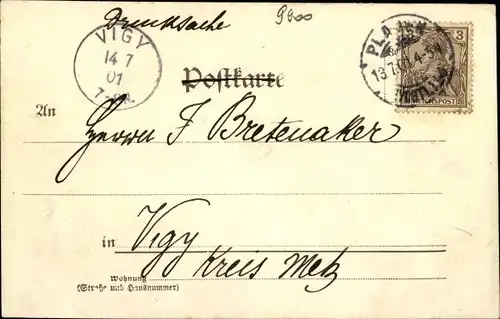 Drucksache
9900
VIGY
14 7
01
7-8N.
Postkarte
PLAUEN
13.7.01.4-5N.
(VOGTL)
3
REICHSPOST
An
Herrn F. Bretenaker
in Vigy
Kreis Metz
Wohnung
(Straße und Hausnummer)